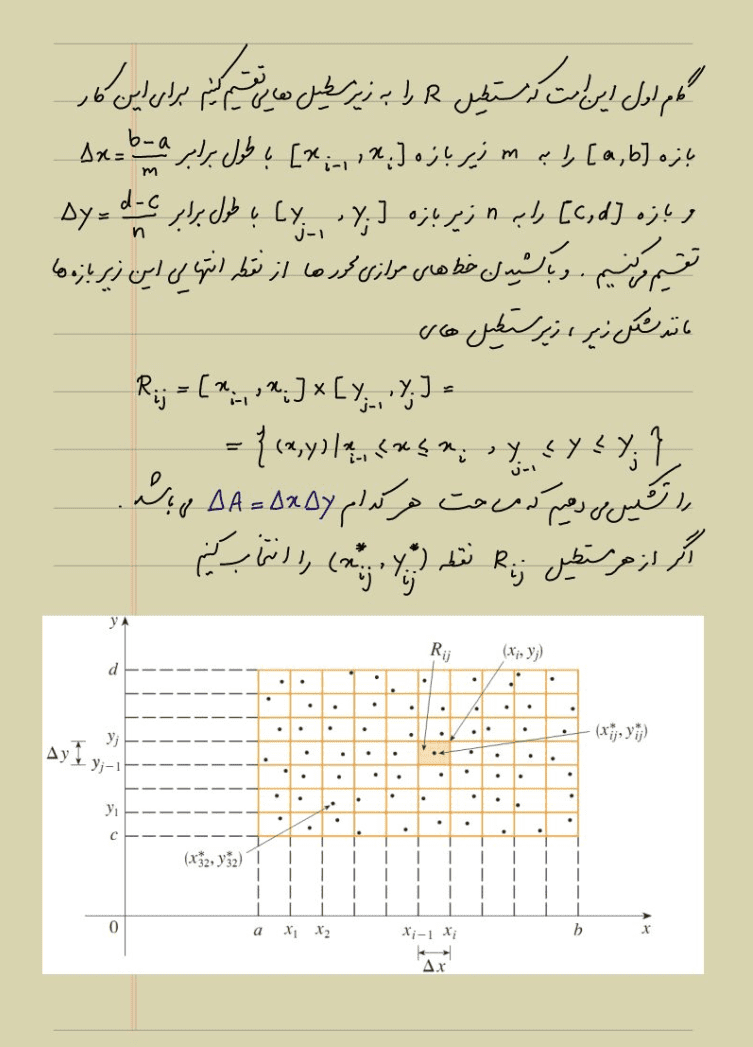 گام اول این است که مستطیل R را به زیرمستطیل هایی تقسیم کنیم برای این کار
بازه [a,b] را به m زیر بازه [xᵢ₋₁ , xᵢ] با طول برابر Δx = (b-a)/m
و بازه [c,d] را به n زیر بازه [yⱼ₋₁ , yⱼ] با طول برابر Δy = (d-c)/n
تقسیم می‌کنیم . و با کشیدن خط های موازی محور ها از نقطه انتهایی این زیر بازه ها
مانند شکل زیر ، زیرمستطیل های
Rᵢⱼ = [xᵢ₋₁ , xᵢ] × [yⱼ₋₁ , yⱼ] =
= { (x,y) | xᵢ₋₁ ≤ x ≤ xᵢ , yⱼ₋₁ ≤ y ≤ yⱼ }
را تشکیل می دهیم که مساحت هر کدام ΔA = ΔxΔy می باشد .
اگر از هر مستطیل Rᵢⱼ نقطه (x*ᵢⱼ , y*ᵢⱼ) را انتخاب کنیم
y
Rᵢⱼ
(xᵢ, yⱼ)
d
(x*ᵢⱼ, y*ᵢⱼ)
yⱼ
Δy
yⱼ₋₁
y₁
c
(x*₃₂, y*₃₂)
0 a x₁ x₂ xᵢ₋₁ xᵢ b x
Δx